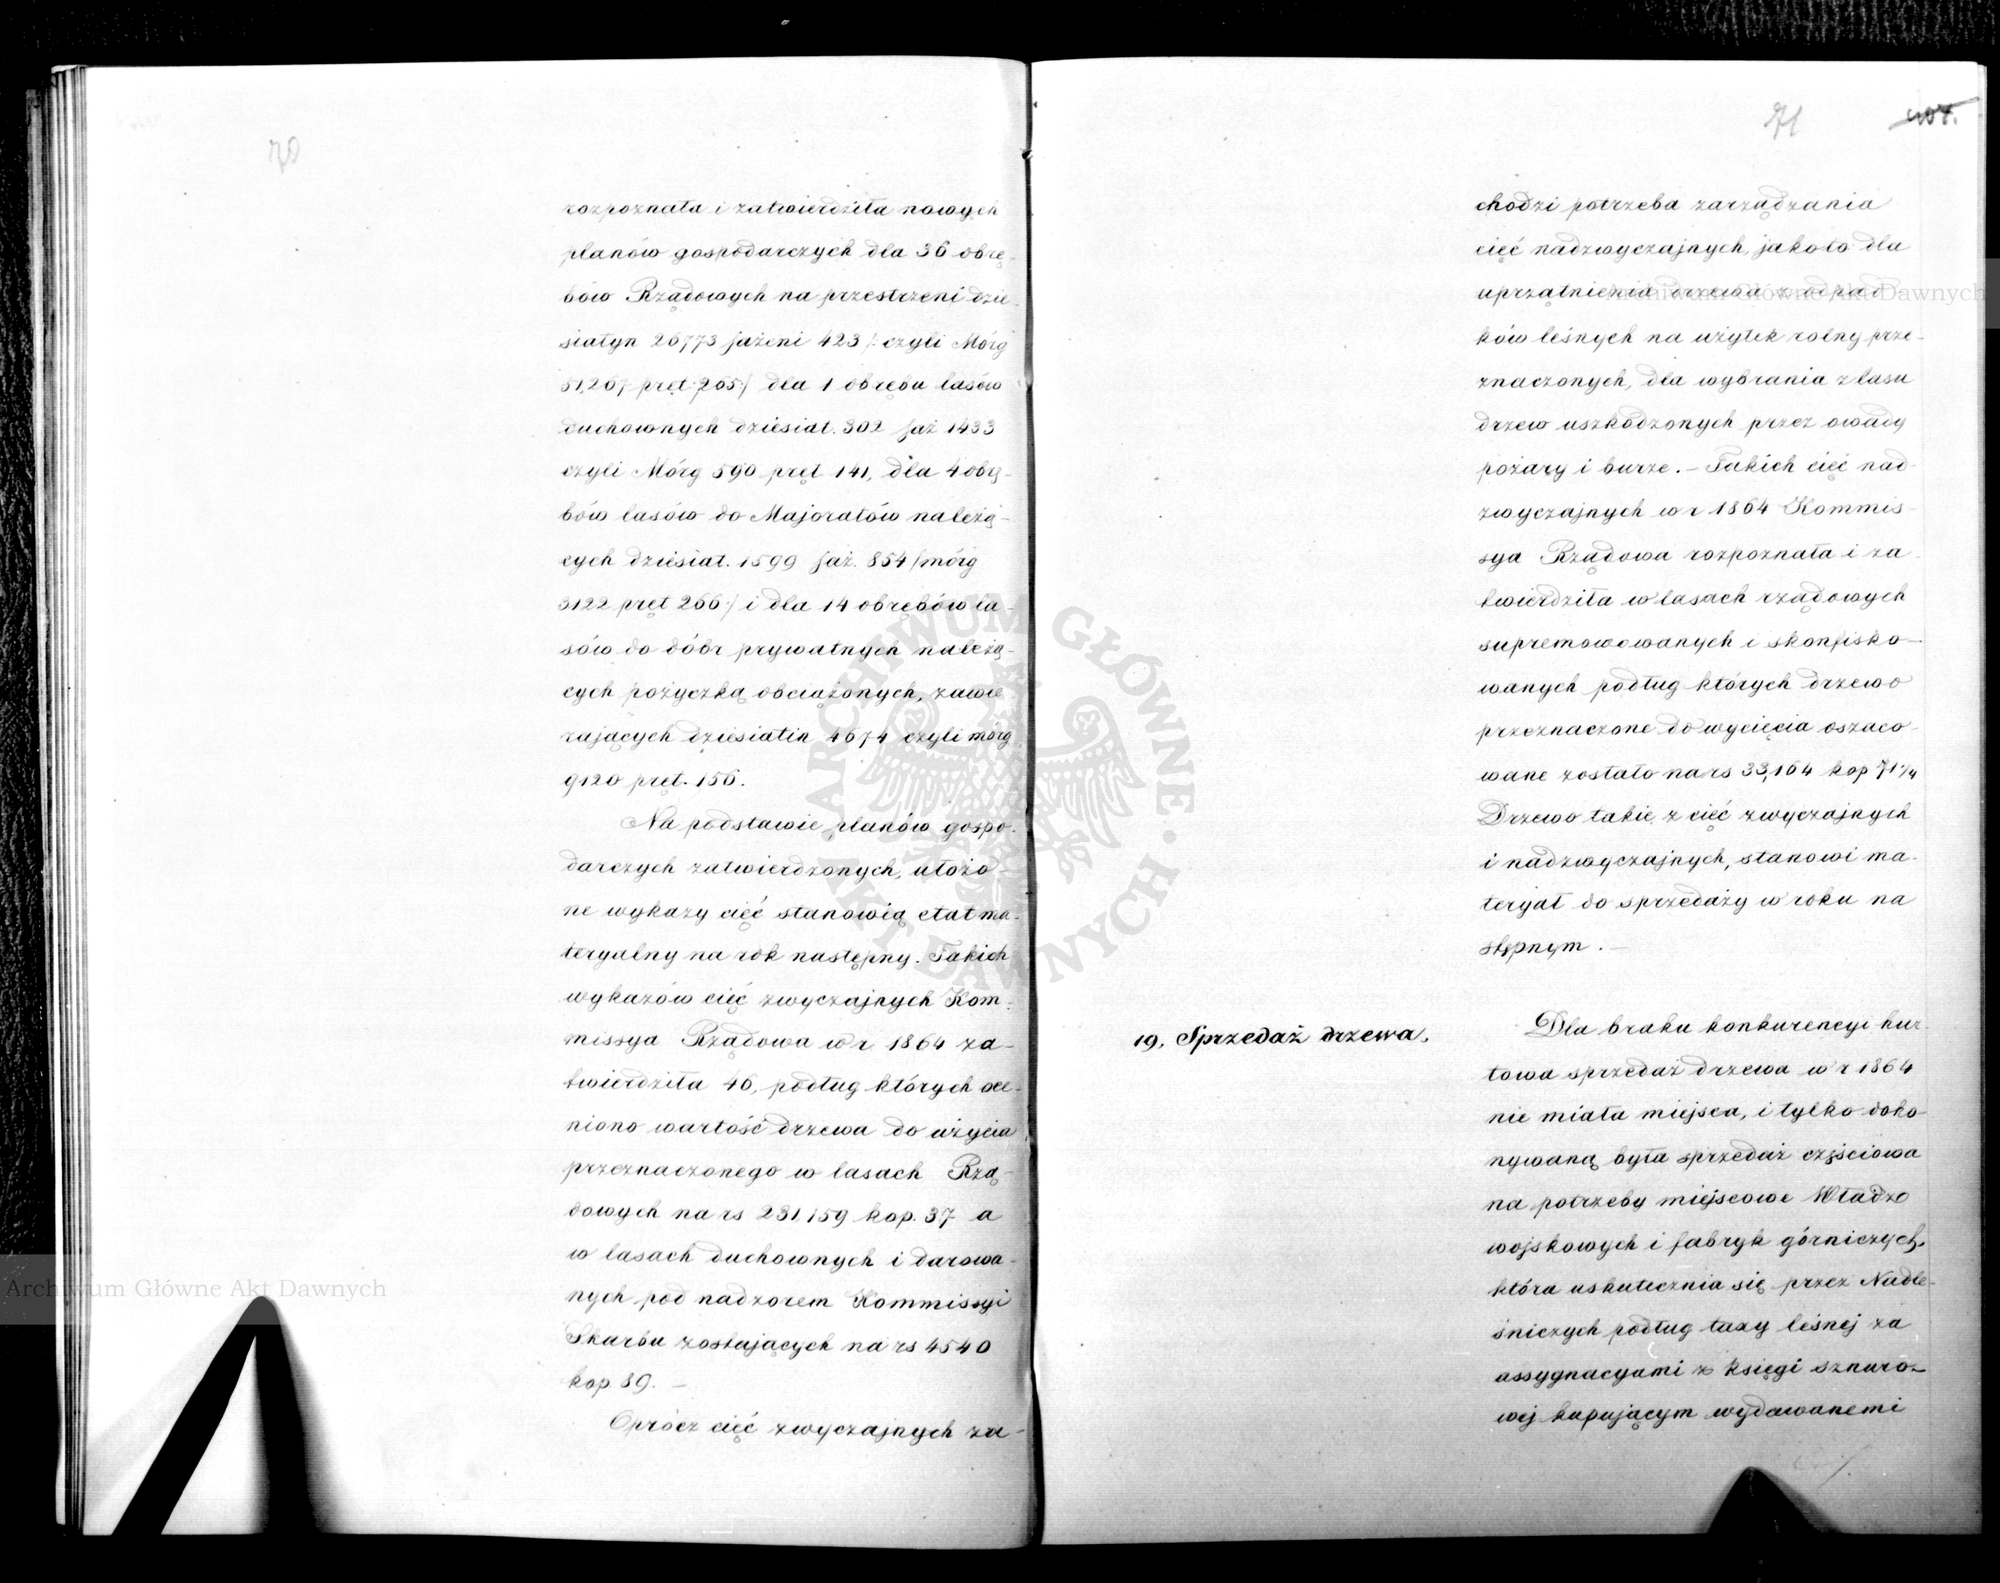 70
rozpoznała i zatwierdziła nowych
planów gospodarczych dla 36 obrę-
bów Rządowych na przestrzeni dzie-
siatyn 26773 sażeni 423 /: czyli Mórg
51,267 pręt. 265 :/ dla 1 obrębu lasów
duchownych dziesiat. 302 saż 1433
czyli Mórg 590 pręt 141, dla 4 obrę-
bów lasów do Majoratów należą-
cych dziesiat. 1599 saż. 854 /mórg
3122 pręt 266 :/ i dla 14 obrębów la-
sów do dóbr prywatnych należą-
cych pożyczką obciążonych, zawie-
rających dziesiatin 4674 czyli mórg
9120 pręt. 156.
Na podstawie planów gospo-
darczych zatwierdzonych, ułożo-
ne wykazy cięć stanowią etat ma-
teryalny na rok następny. Takich
wykazów cięć zwyczajnych Kom-
missya Rządowa w r 1864 za-
twierdziła 46, podług których oce-
niono wartość drzewa do użycia
przeznaczonego w lasach Rzą-
dowych na rs 231,159 kop. 37 a
w lasach duchownych i darowa-
nych pod nadzorem Kommissyi
Skarbu zostających na rs 4540
kop 39. —
Oprócz cięć zwyczajnych za-
71
107.
chodzi potrzeba zarządzania
cięć nadzwyczajnych, jakoto dla
uprzątnienia drzewa z odpad-
ków leśnych na użytek rolny prze-
znaczonych, dla wybrania z lasu
drzew uszkodzonych przez owady
pożary i burze. — Takich cięć nad-
zwyczajnych w r 1864 Kommis-
sya Rządowa rozpoznała i za-
twierdziła w lasach rządowych
supremowowanych i skonfisko-
wanych podług których drzewo
przeznaczone do wycięcia oszaco-
wane zostało na rs 33,164 kop 71 1/4
Drzewo takie, z cięć zwyczajnych
i nadzwyczajnych, stanowi ma-
teryał do sprzedaży w roku na
stępnym. —
19. Sprzedaż drzewa.
Dla braku konkurencyi hur-
towa sprzedaż drzewa w r 1864
nie miała miejsca, i tylko doko-
nywaną była sprzedaż częściowa
na potrzeby miejscowe Władz
wojskowych i fabryk górniczych,
która uskutecznia się przez Nadle-
śniczych podług taxy leśnej za
assygnacyami z księgi sznuro-
wej kupującym wydawanemi
ARCHIWUM GŁÓWNE AKT DAWNYCH
Archiwum Główne Akt Dawnych
Archiwum Główne Akt Dawnych